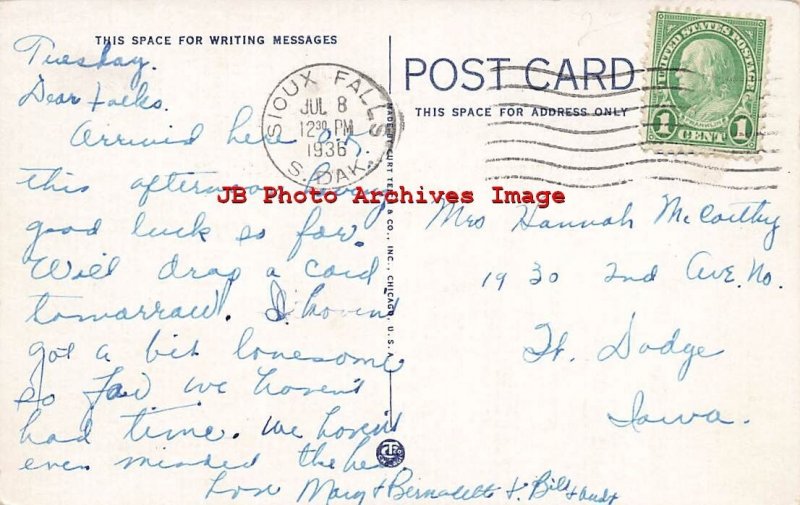 THIS SPACE FOR WRITING MESSAGES
Tuesday.
Dear Folks.
Arrived here O.K.
this afternoon having
good luck so far.
Will drop a card
tomorrow. I haven't
got a bit lonesome
so far we haven't
had time. We haven't
even minded the heat
Love Mary & Bernadette & Bill &
SIOUX FALLS
JUL 8
12 30 PM
1936
S. DAK.
MADE BY CURT TEICH & CO., INC., CHICAGO, U.S.A.
POST CARD
THIS SPACE FOR ADDRESS ONLY
UNITED STATES POSTAGE
FRANKLIN
1 CENT 1
JB Photo Archives Image
Mrs Hannah McCarthy
1930 2nd Ave. No.
Ft. Dodge
Iowa.